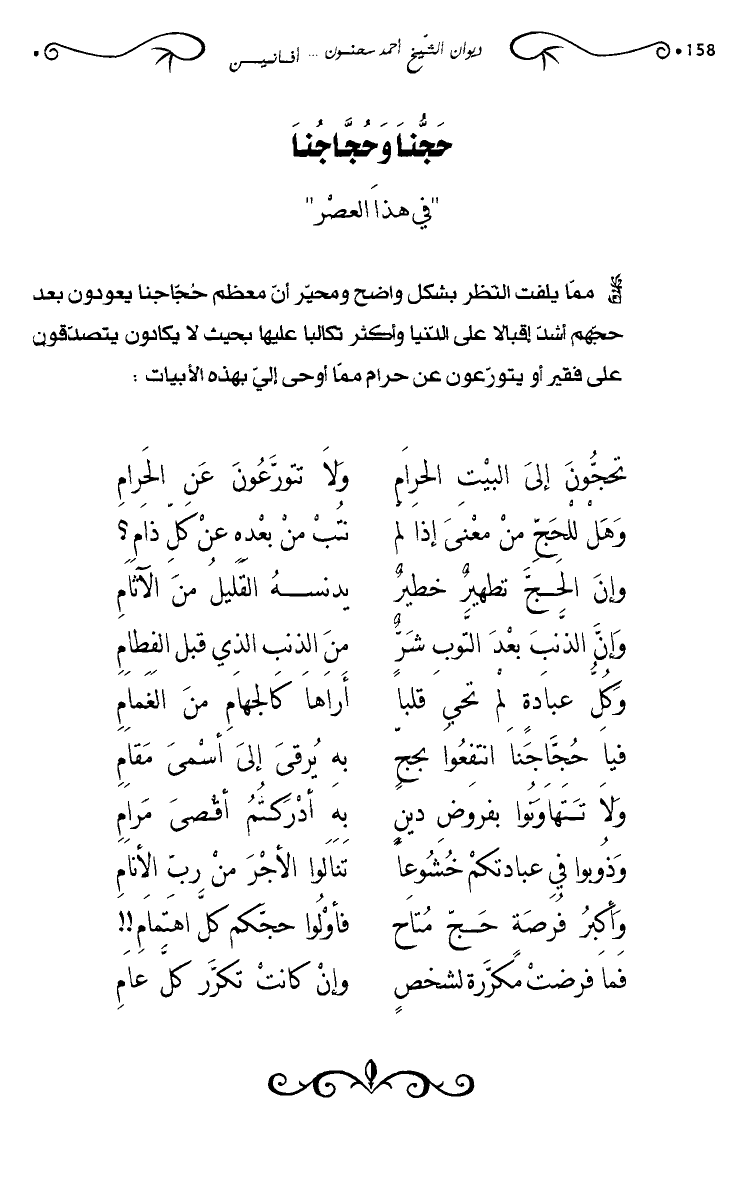 158 • ديوان الشيخ أحمد سحنون ... أفانيـــن
حَجُّنَا وَحُجَّاجُنَا
"في هذَا العصْر"
ممّا يلفت النّظر بشكل واضح ومحيّر أنّ معظم حُجّاجنا يعودون بعد
حجّهم أشدّ إقبالا على الدّنيا وأكثر تكالبا عليها بحيث لا يكادون يتصدّقون
على فقير أو يتورّعون عن حرام ممّا أوحى إليّ بهذه الأبيات :
تحجُّونَ إلىَ البيْتِ الحرامِ وَلاَ تتورَّعُونَ عَنِ الحَرامِ
وَهَلْ للْحَجّ منْ معْنىَ إذا لمْ نتُبْ منْ بعْدِهِ عنْ كلّ ذامِ؟
وإنَ الحِــجَّ تطهيرٌ خطيرٌ يدنســـهُ القَليلُ منَ الآثَامِ
وَإنَّ الذنبَ بعْدَ التّوبِ شرٌّ منَ الذنبِ الذي قبل الفطامِ
وَكلُّ عبادةٍ لمْ تحيِ قلباً أراهَا كالجهامِ منَ الغمامِ
فيا حُجَّاجَنا انتفعُوا بحجّ بهِ يُرقىَ إلىَ أسْمىَ مَقامِ
وَلاَ تَــتهاوَنُوا بفروضِ دينٍ بهِ أدْرَكتُمُ أقْـصىَ مَرامِ
وَذُوبوا فيِ عبادتكمْ خُشُوعاً تنالوا الأجْرَ منْ ربّ الأنامِ
وَأكبرُ فُرصَةٍ حَــجّ مُتاح فأوْلُوا حجّكم كلَّ اهتِمامِ!!
فمَا فرضتْ مكرَّرة لشخصٍ وإنْ كانتْ تكرَّر كلَّ عامِ